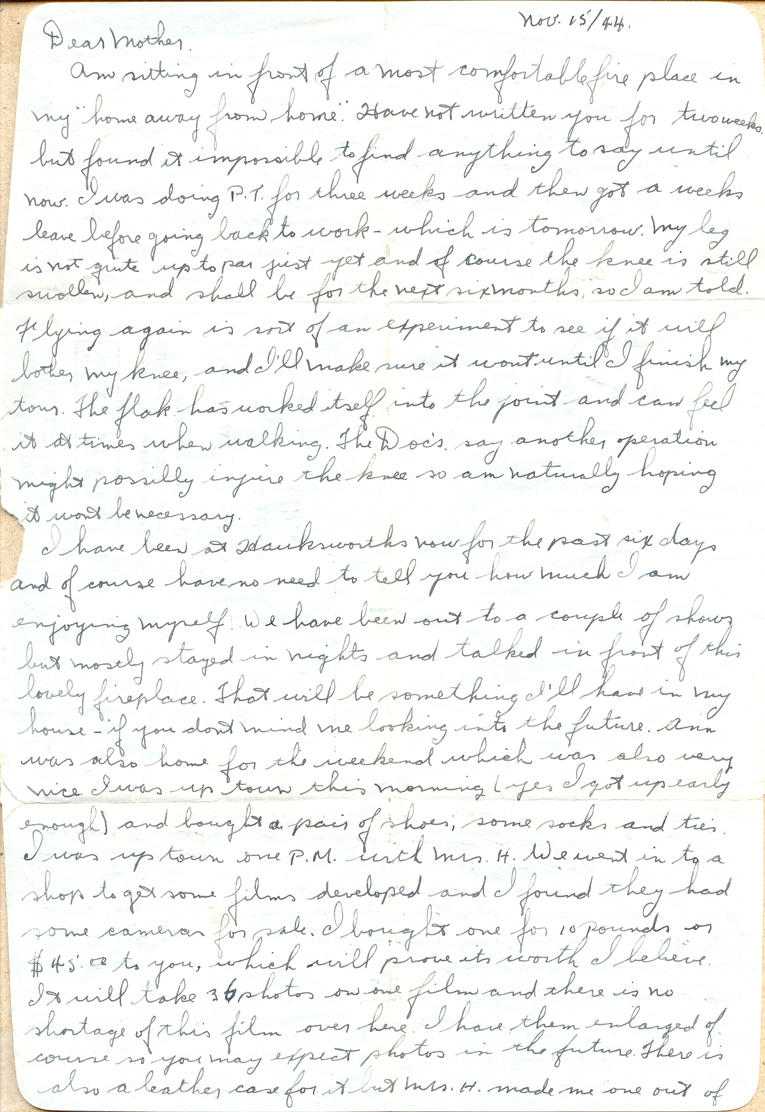 Nov. 15/44.
Dear Mother.
Am sitting in front of a most comfortable fire place in
my "home away from home". Have not written you for two weeks
but found it impossible to find anything to say until
now. I was doing P.T. for three weeks and then got a weeks
leave before going back to work - which is tomorrow. My leg
is not quite up to par just yet and of course the knee is still
swollen, and shall be for the next six months, so I am told.
Flying again is sort of an experiment to see if it will
bother my knee, and I'll make sure it wont until I finish my
tour. The flak has worked itself into the joint and can feel
it at times when walking. The Doc's. say another operation
might possibly injure the knee so am naturally hoping
it wont be necessary.
I have been at Hawksworths now for the past six days
and of course have no need to tell you how much I am
enjoying myself. We have been out to a couple of shows
but mostly stayed in nights and talked in front of this
lovely fireplace. That will be something I'll have in my
house - if you dont mind me looking into the future. Ann
was also home for the weekend which was also very
nice. I was up town this morning (yes I got up early
enough) and bought a pair of shoes, some socks and ties.
I was up town one P.M. with Mrs. H. We went in to a
shop to get some films developed and I found they had
some cameras for sale. I bought one for 10 pounds or
$45.00 to you, which will prove its worth I believe.
It will take 36 photos on one film and there is no
shortage of this film over here. I have them enlarged of
course so you may expect photos in the future. There is
also a leather case for it but Mrs. H. made me one out of